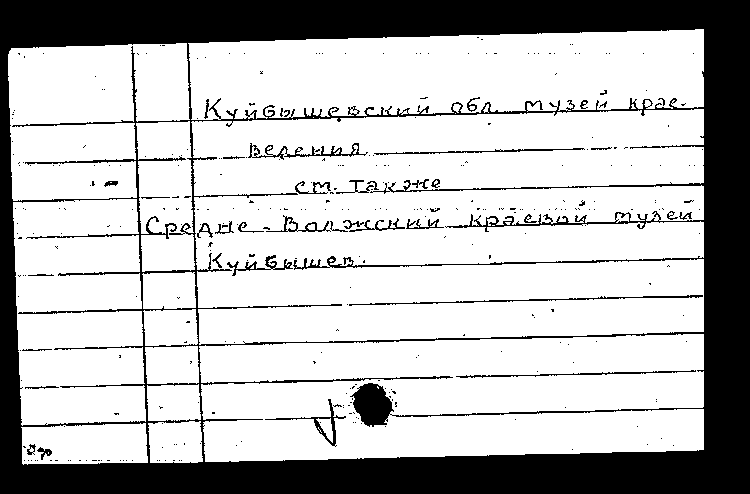 Куйбышевский обл. музей крае-
ведения
см. также
Средне-Волжский краевой музей
Куйбышев.